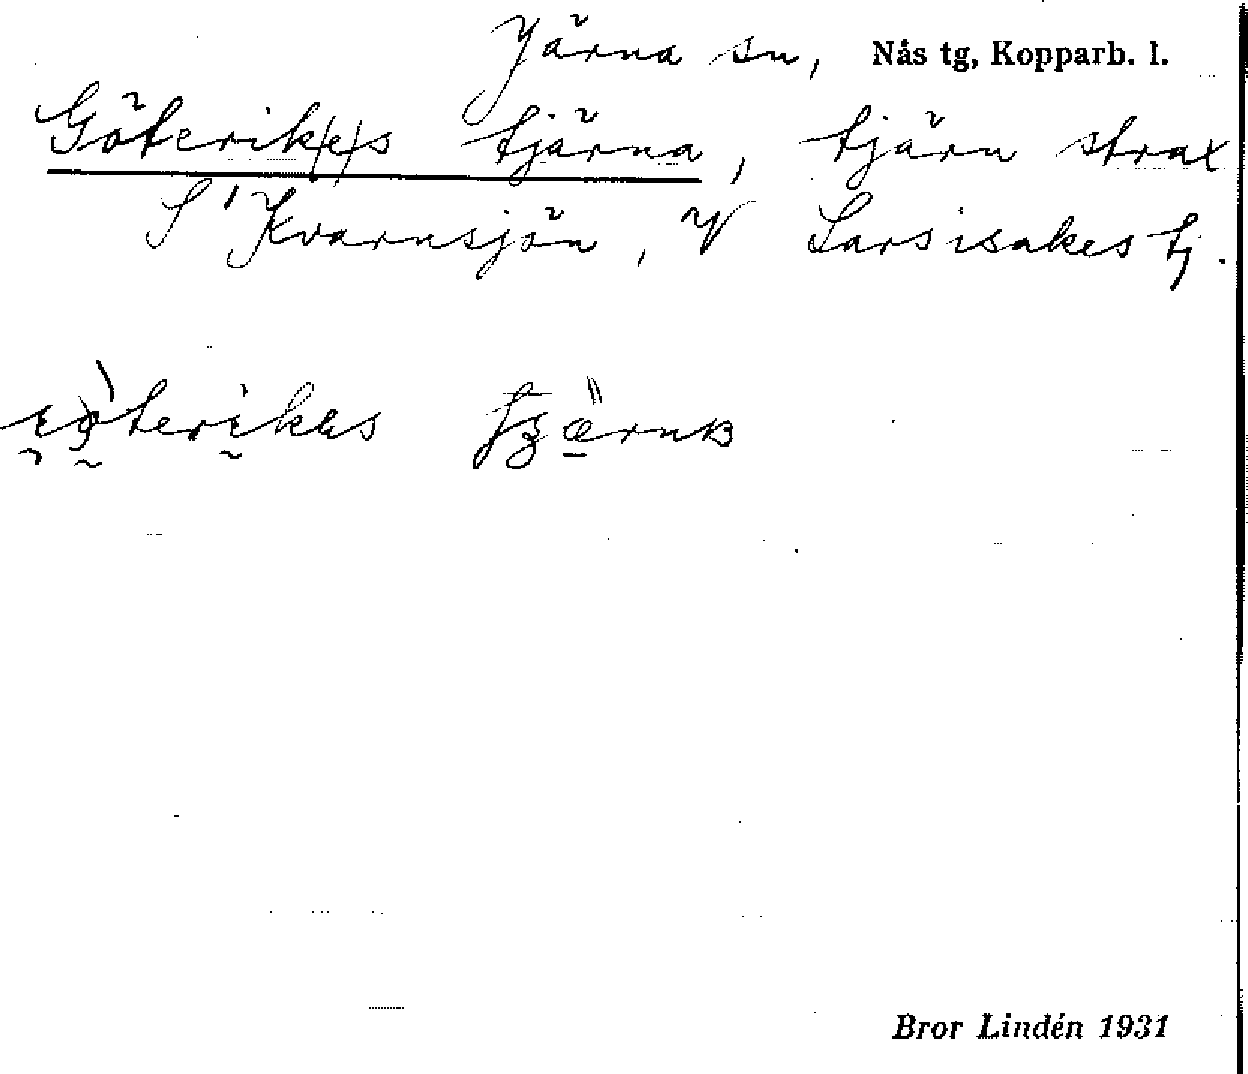 Järna sn, Nås tg, Kopparb. l.
Göterik/e/s tjärna, tjärn strax
S' Kvarnsjön, V Larsisakes tj.
tjärna
Bror Lindén 1931